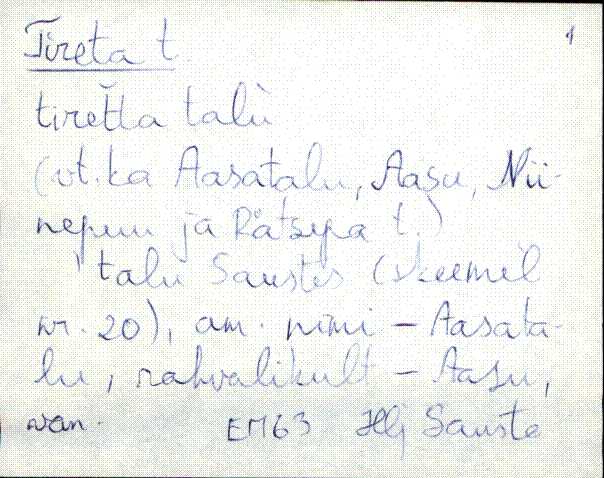 Tireta t. 1
tiretta talu
(vt. ka Aasatalu, Aasu, Nii-
nepuu ja Rätsepa t.)
talu Saustes (skeemil
nr. 20), am. nimi - Aasata-
lu, rahvalikult - Aasu,
van. EM63 Hlj Sauste